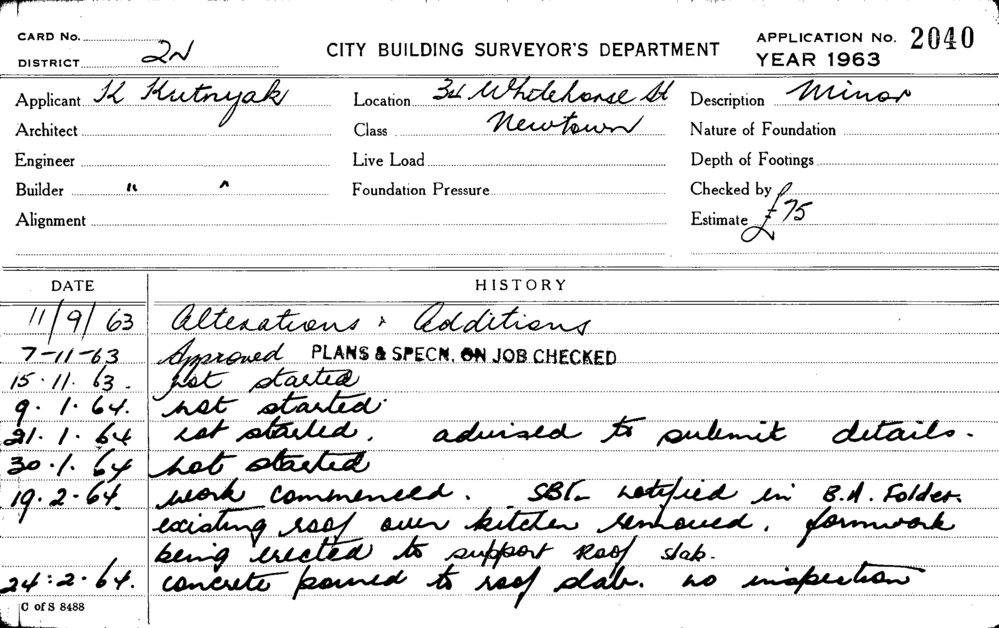 CARD No.
DISTRICT 2N
CITY BUILDING SURVEYOR'S DEPARTMENT
APPLICATION No. 2040
YEAR 1963
Applicant K Kutnyak
Location 34 Whitehorse St
Description Minor
Architect
Class Newtown
Nature of Foundation
Engineer
Live Load
Depth of Footings
Builder " "
Foundation Pressure
Checked by
Alignment
Estimate £75
DATE HISTORY
11/9/63 Alterations & Additions
7-11-63 Approved PLANS & SPECN. ON JOB CHECKED
15.11.63. not started
9.1.64. not started.
21.1.64 not started. advised to submit details.
30.1.64 not started
19.2.64. work commenced. notified in B.A. Folder.
existing roof over kitchen removed. formwork
being erected to support roof slab.
24:2.64. concrete poured to roof slab. no inspection
C of S 8488